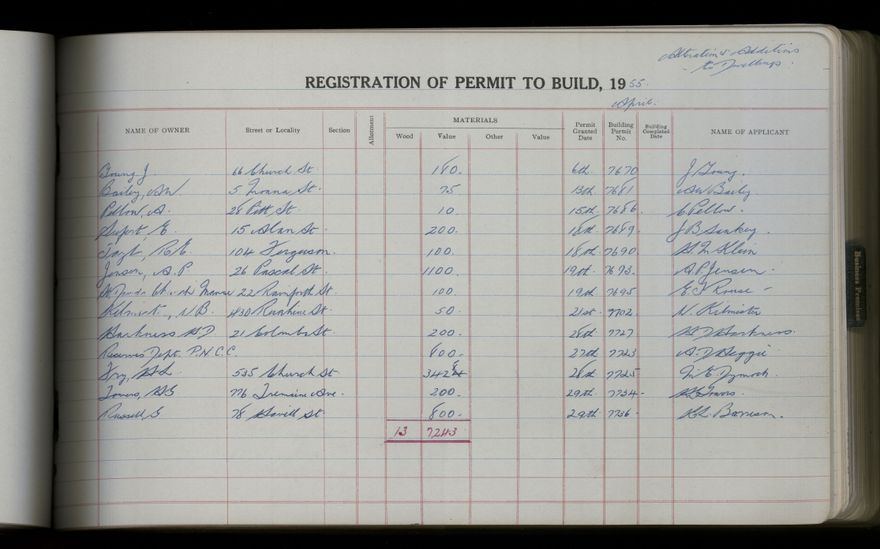 Alterations & Additions
to Dwellings.
REGISTRATION OF PERMIT TO BUILD, 1955.
April.
NAME OF OWNER Street or Locality Section Allotment MATERIALS Wood Value Other Value Permit Granted Date Building Permit No. Building Completed Date NAME OF APPLICANT
Young J. 66 Church St 180. 6th 7670 J Young.
Bailey, AW 5 St. 75 13th 7681 AW Bailey
Pellow, A. 28 Pitt St. 10. 15th 7686. Pellow.
E. 15 Alan St. 200. 18th 7689. J B Sankey.
R.E. 104 Ferguson. 100. 18th 7690. Klein
Jensen, A.P 26 Pascal St. 1100. 19th 7693. A P Jensen.
Church Manse 22 Rainforth St. 100 19th 7695 E J Rouse
N.B. 430 St. 50. 21st 7702 N. Kilmister
Harkness 21 Colombo St 200. 28th 7727 Harkness.
Reserves Dept. P.N.C.C. 600. 27th 7723 Beggie
Fry, 535 Church St 3428 28th 7725 Dymock
Towers, 776 Tremaine Ave. 200. 29th 7734. Towers.
Russell G 78 Savill St 800. 29th 7736. Barrison.
13 7243
Business Premises